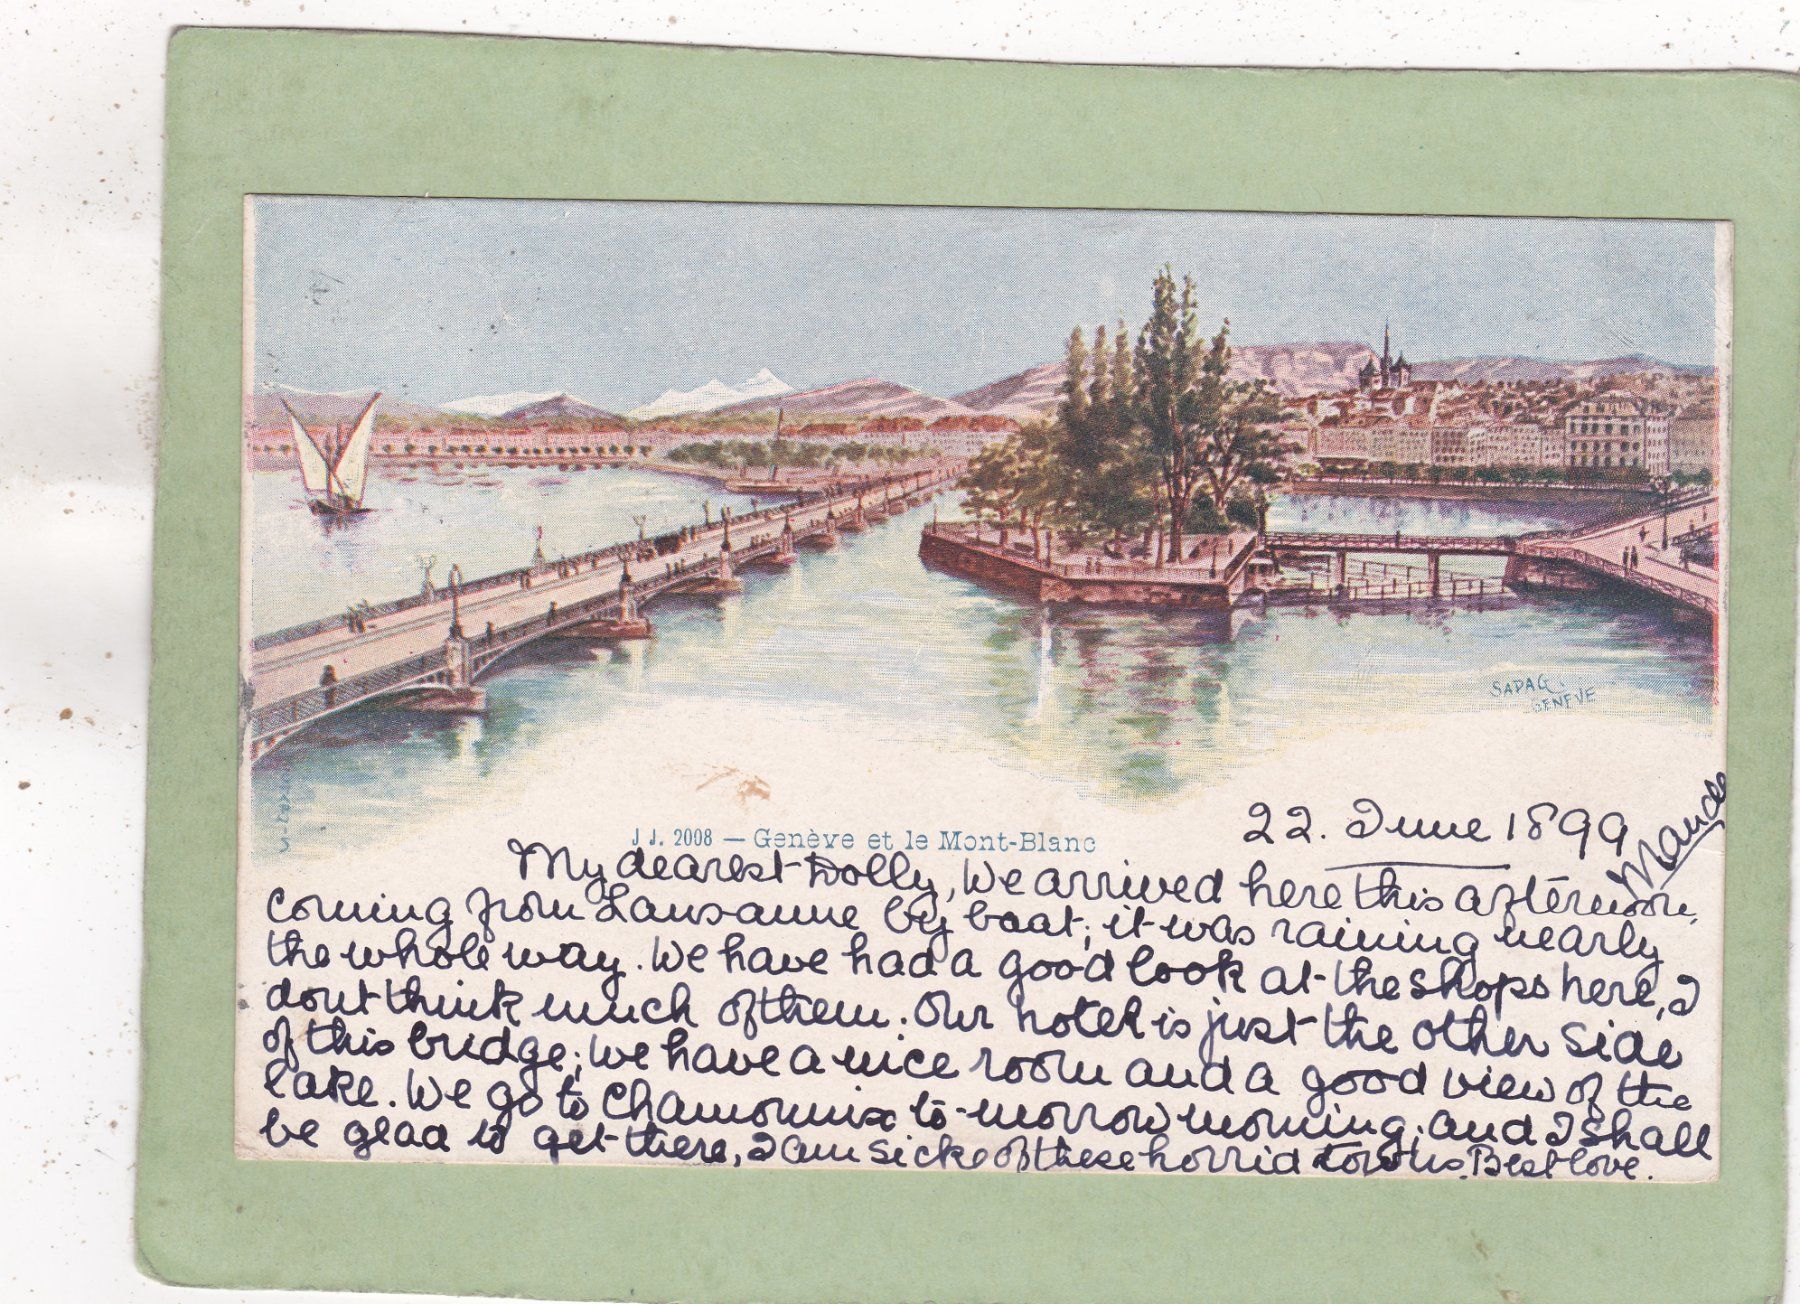 SADAG.
GENÈVE
J J. 2008 — Genève et le Mont-Blanc
22. June 1899
My dearest Dolly, We arrived here this afternoon,
coming from Lausanne by boat; it was raining nearly
the whole way. We have had a good look at the shops here, I
dont think much of them. Our hotel is just the other side
of this bridge; we have a nice room and a good view of the
lake. We go to Chamounix to-morrow morning; and I shall
be glad to get there, I am sick of these horrid towns. Best love.
Maude